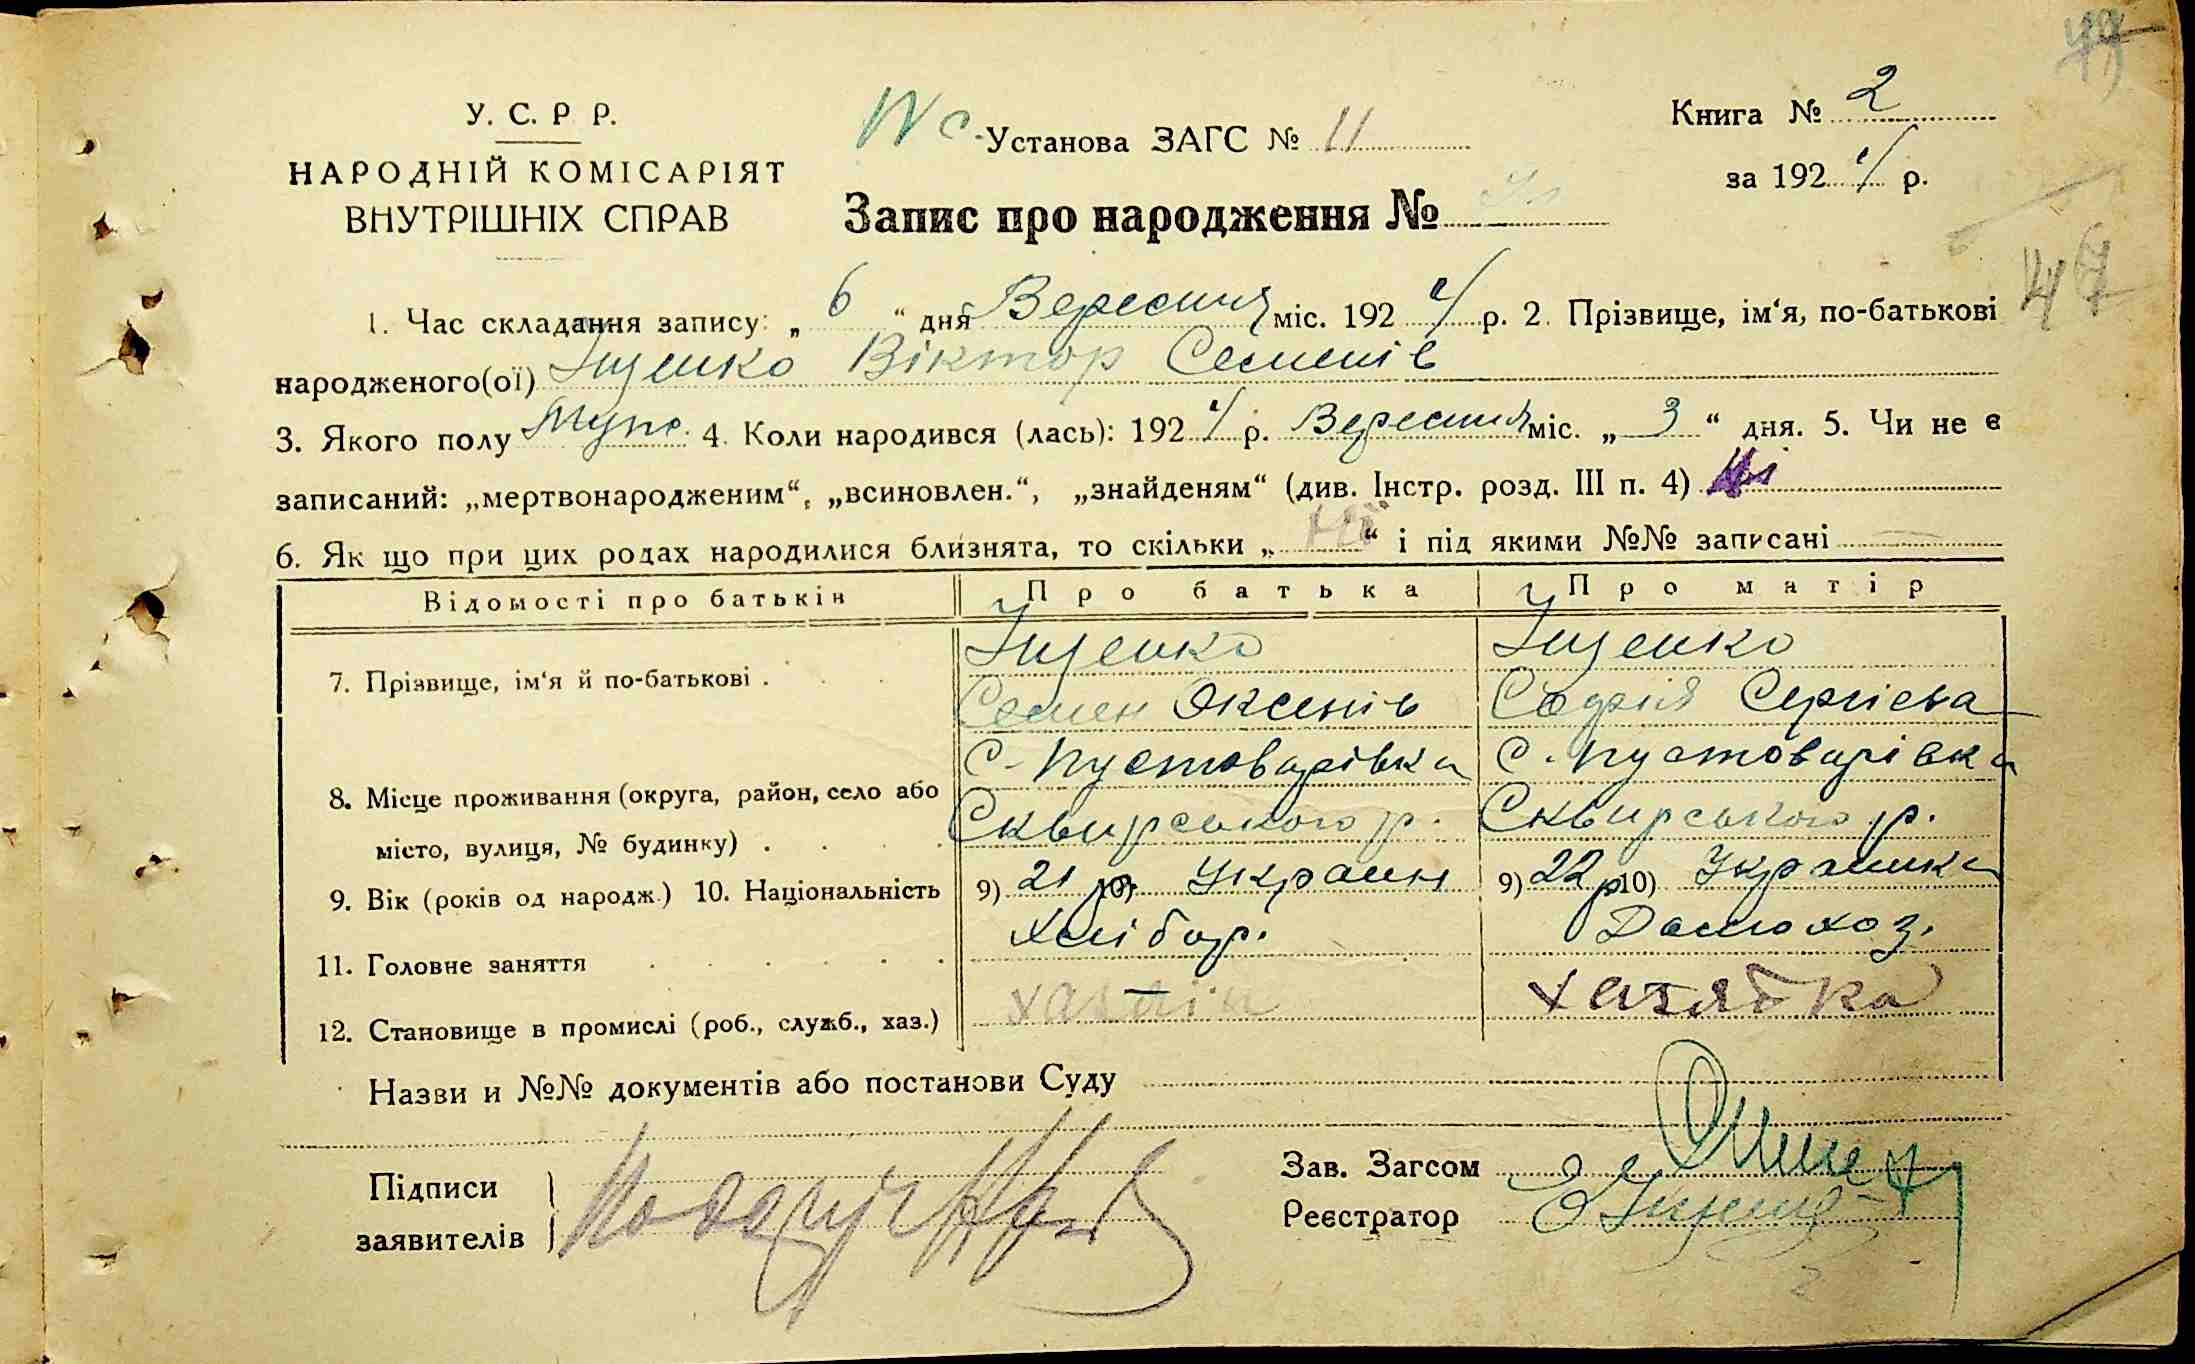 У. С. Р Р.
НАРОДНІЙ КОМІСАРІЯТ
ВНУТРІШНІХ СПРАВ
Установа ЗАГС № 11
Книга № 2
за 1924 р.
Запис про народження №
47
1. Час складання запису: „ 6 “ дня Вересня міс. 1924 р. 2. Прізвище, ім‘я, по-батькові
народженого(ої) Іщенко Віктор Семенів
3. Якого полу 4. Коли народився (лась): 1924 р. Вересня міс. „ 3 “ дня. 5. Чи не є
записаний: „мертвонародженим“, „всиновлен.“, „знайденям“ (див. Інстр. розд. III п. 4) Ні
6. Як що при цих родах народилися близнята, то скільки „ “ і під якими №№ записані —
Відомості про батьків Про батька Про матір
7. Прізвище, ім‘я й по-батькові . Іщенко Іщенко
Семен Оксенів Софія Сергієва
8. Місце проживання (округа, район, село або місто, вулиця, № будинку) . с. Пустоварівка с. Пустоварівка
Сквирського р. Сквирського р.
9. Вік (років од народж.) 10. Національність 9) 21 р. 10) Украин 9) 22 р 10) Украинка
11. Головне заняття Хлібор. Домохоз.
12. Становище в промислі (роб., служб., хаз.) хазяїн хазяйка
Назви и №№ документів або постанови Суду
Підписи
заявителів
Зав. Загсом
Реєстратор